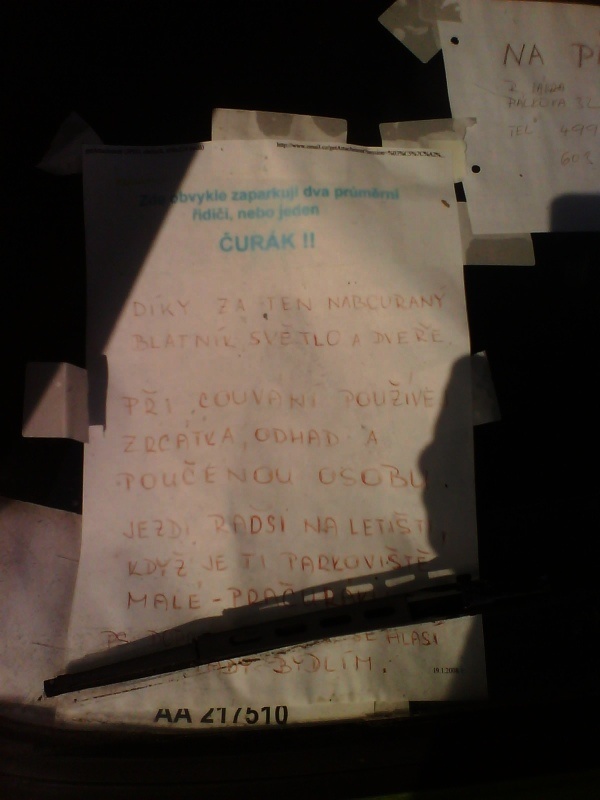 NA
TEL 499
Zde obvykle zaparkují dva průměrní
řidiči, nebo jeden
ČURÁK !!
DÍKY ZA TEN NABOURANÝ
BLATNÍK, SVĚTLO A DVEŘE.
PŘI COUVÁNÍ POUŽIVE
ZRCÁTKA, ODHAD A
POUČENOU OSOBU.
JEZDI RADŠI NA LETIŠTI,
KDYŽ JE TI PARKOVIŠTĚ
MALÉ - PRAČURÁKU
PS HLASÍ
BYDLÍM.
19.1.2008
AA 217510